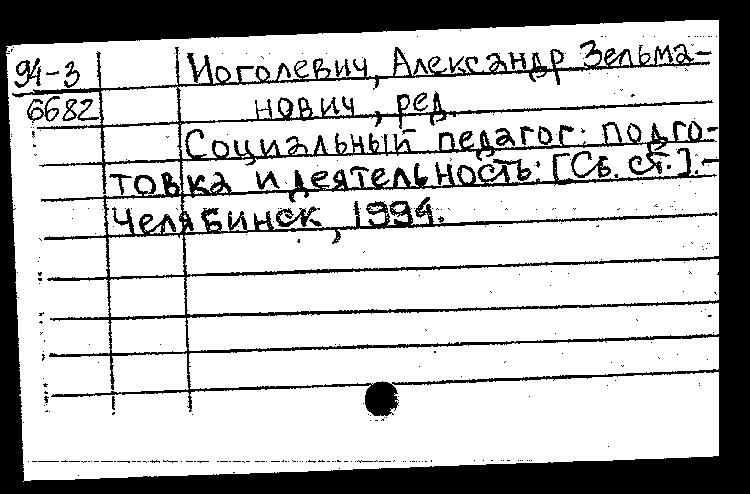 94-3
6682
Иоголевич, Александр Зельма-
нович, ред.
Социальный педагог: подго-
товка и деятельность: [Сб. ст.].-
Челябинск, 1994.